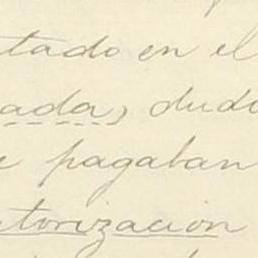 tado en el
ada, dudo
pagaban
torización